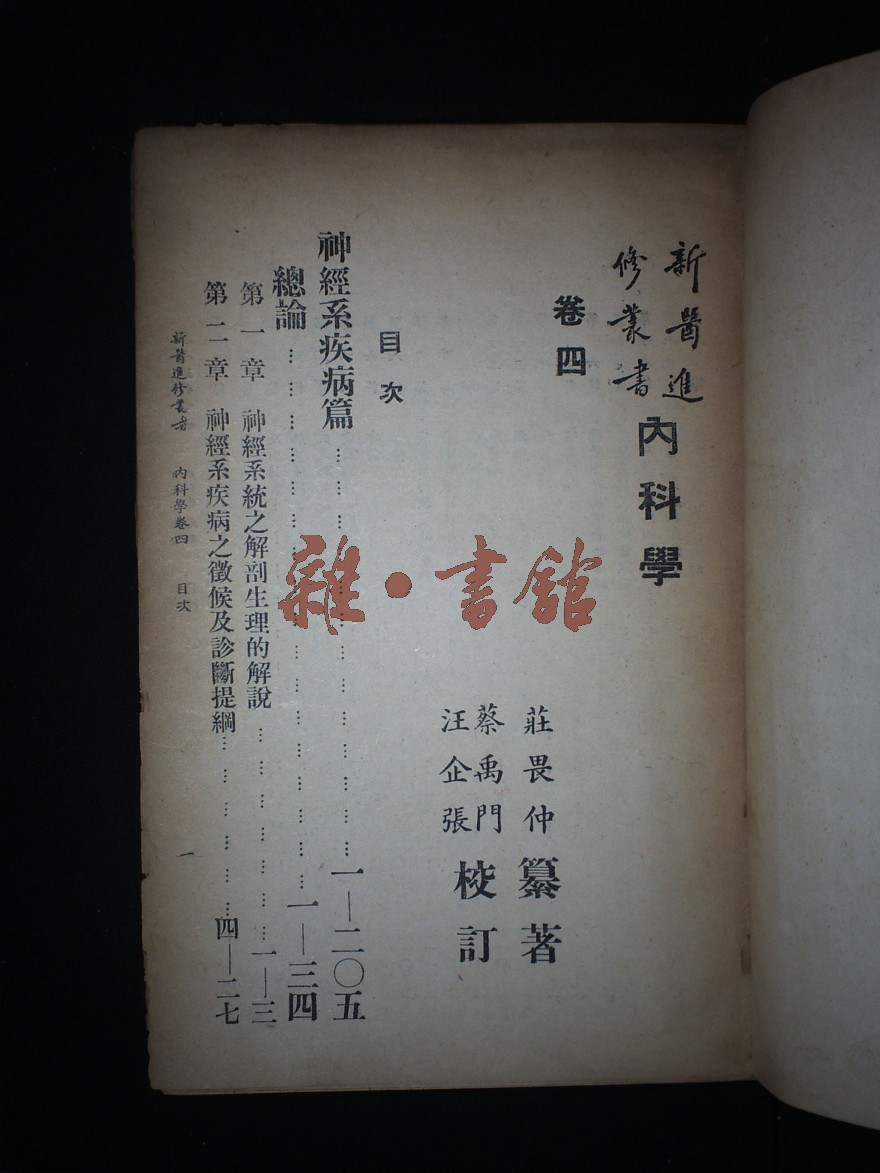 新醫進
修叢書
內科學
卷四
莊畏仲纂著
蔡禹門
汪企張
校訂
目次
神經系疾病篇………………一—二〇五
總論………………一—三四
第一章 神經系統之解剖生理的解說………一—三
第二章 神經系疾病之徵候及診斷提綱………四—二七
新醫進修叢書 內科學卷四 目次 一
雜·書館